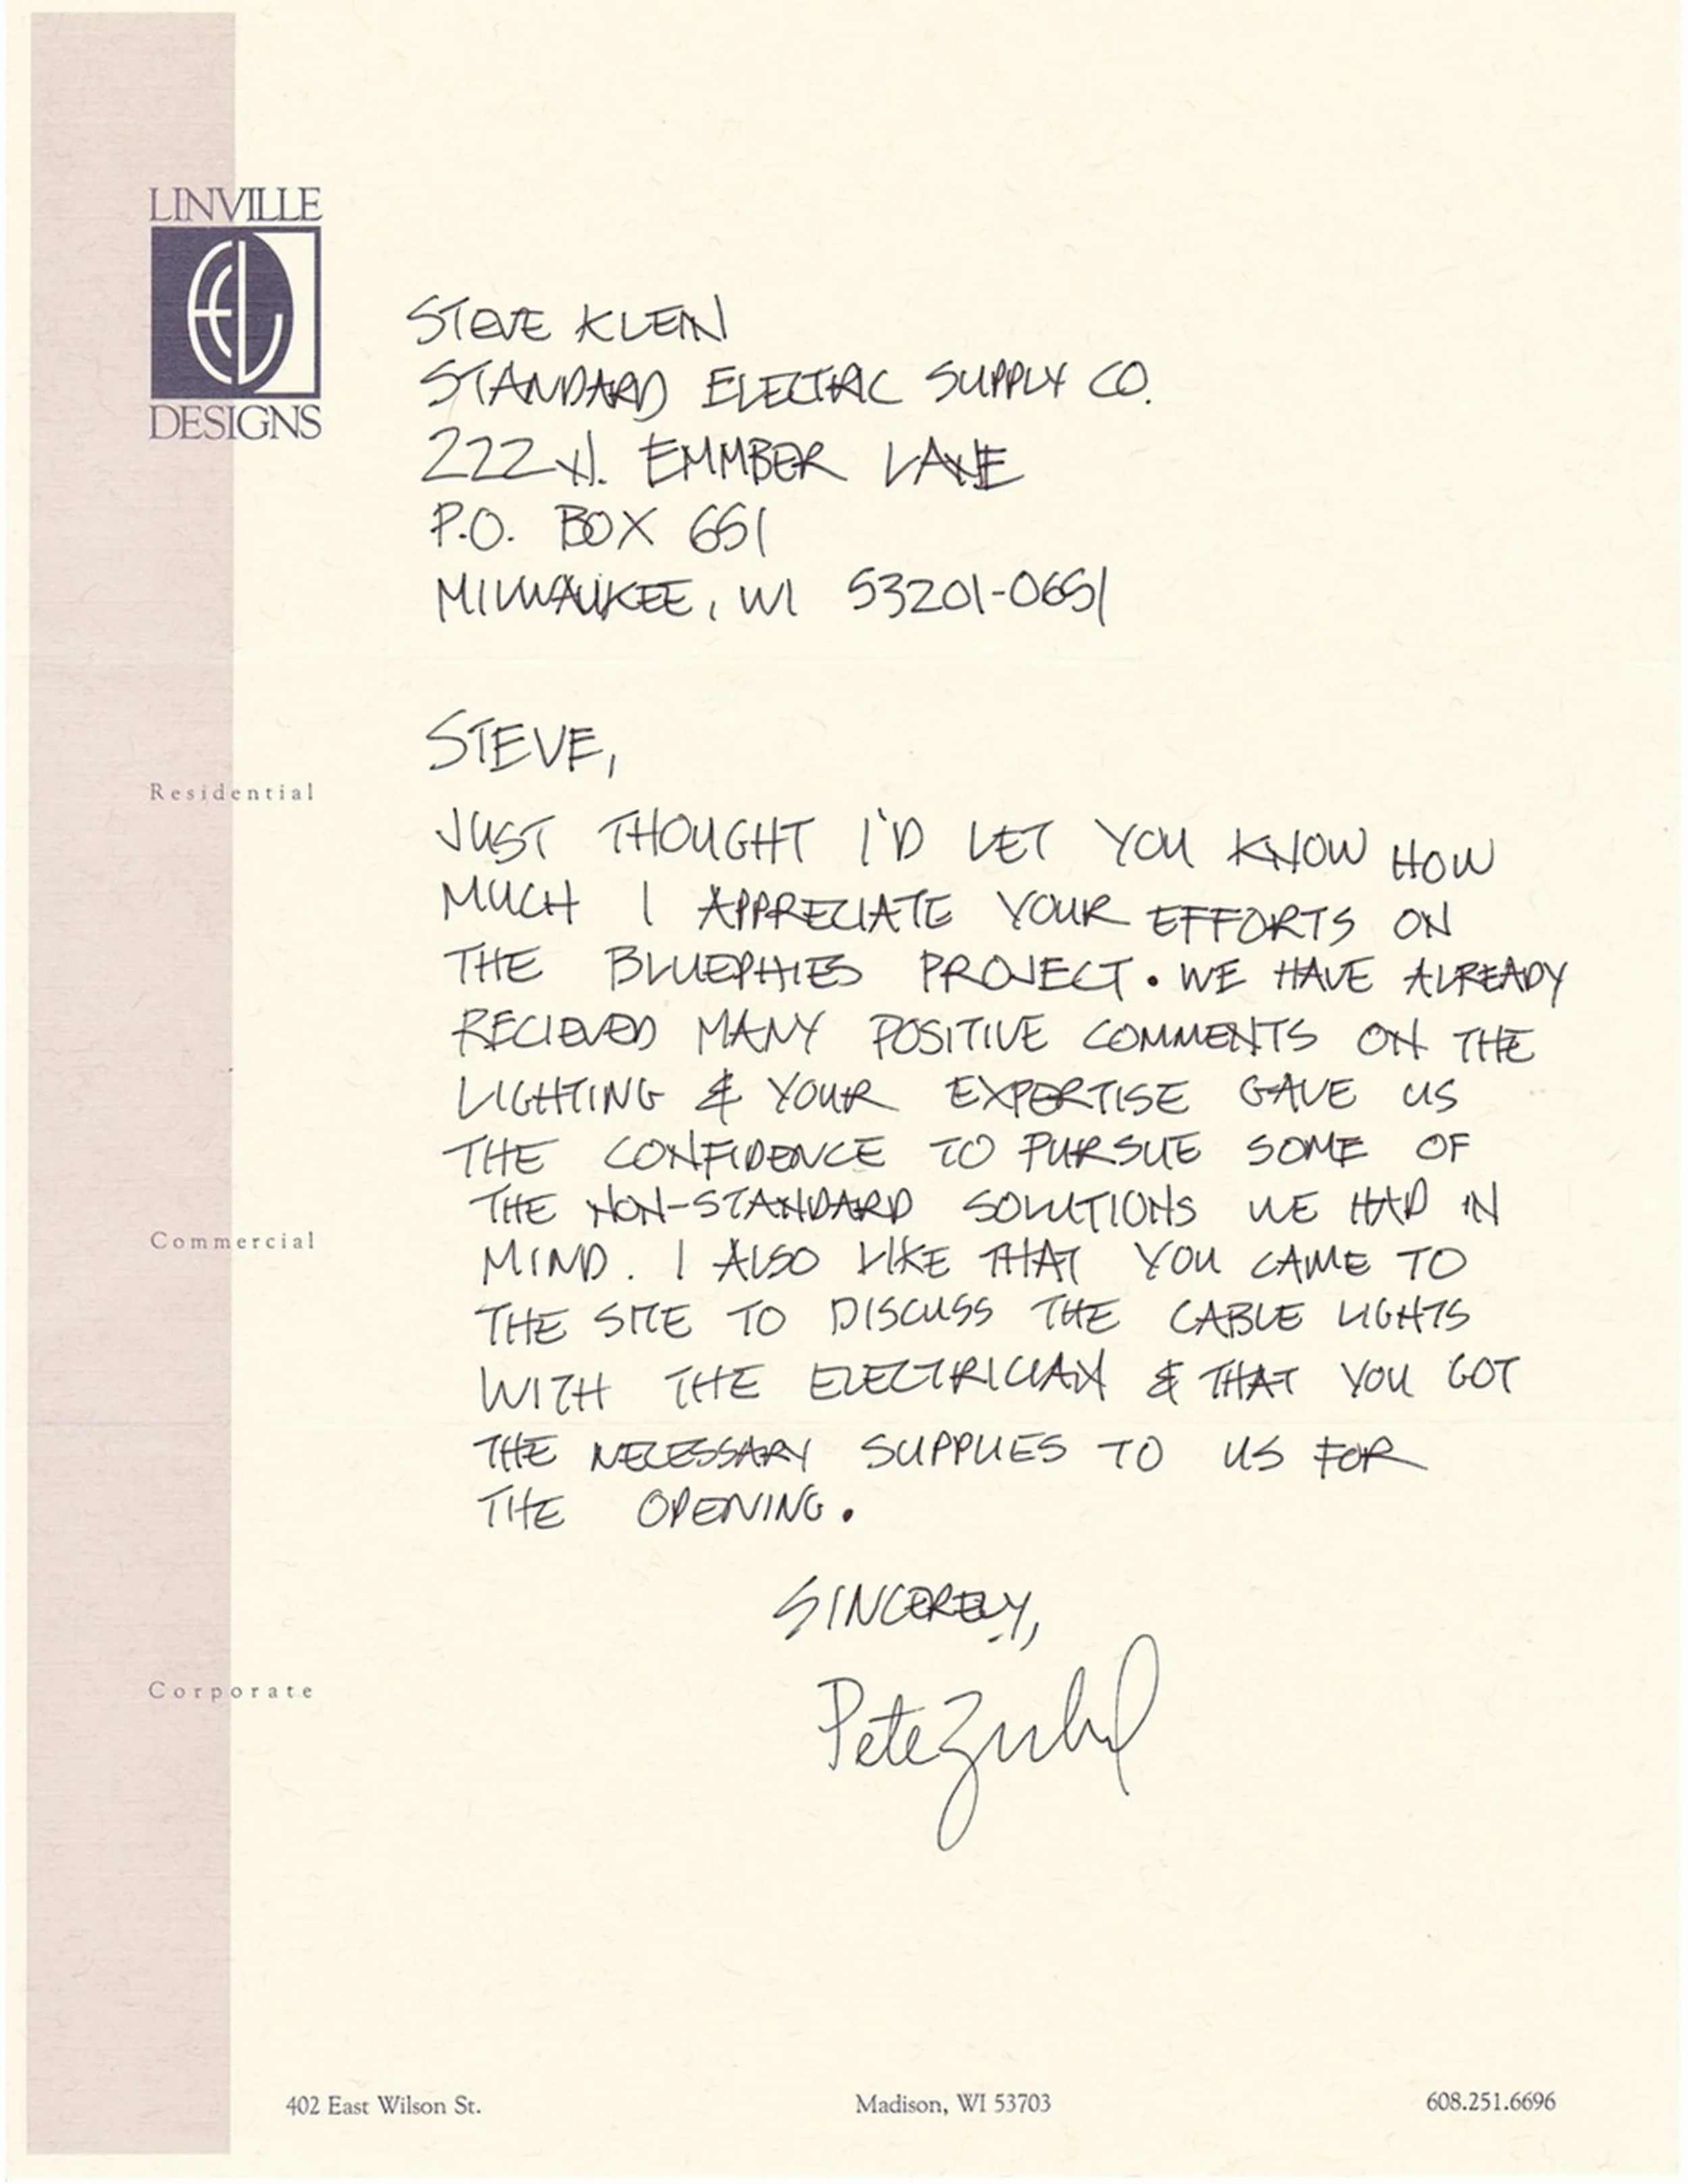 LINVILLE
EL
DESIGNS
STEVE KLEIN
STANDARD ELECTRIC SUPPLY CO.
222 N. EMMBER LANE
P.O. BOX 651
MILWAUKEE, WI 53201-0651
STEVE,
Residential
JUST THOUGHT I'D LET YOU KNOW HOW
MUCH I APPRECIATE YOUR EFFORTS ON
THE BLUEPHIES PROJECT. WE HAVE ALREADY
RECIEVED MANY POSITIVE COMMENTS ON THE
LIGHTING & YOUR EXPERTISE GAVE US
THE CONFIDENCE TO PURSUE SOME OF
THE NON-STANDARD SOLUTIONS WE HAD IN
Commercial
MIND. I ALSO LIKE THAT YOU CAME TO
THE SITE TO DISCUSS THE CABLE LIGHTS
WITH THE ELECTRICIAN & THAT YOU GOT
THE NECESSARY SUPPLIES TO US FOR
THE OPENING.
SINCERELY,
Corporate
Pete
402 East Wilson St. Madison, WI 53703 608.251.6696